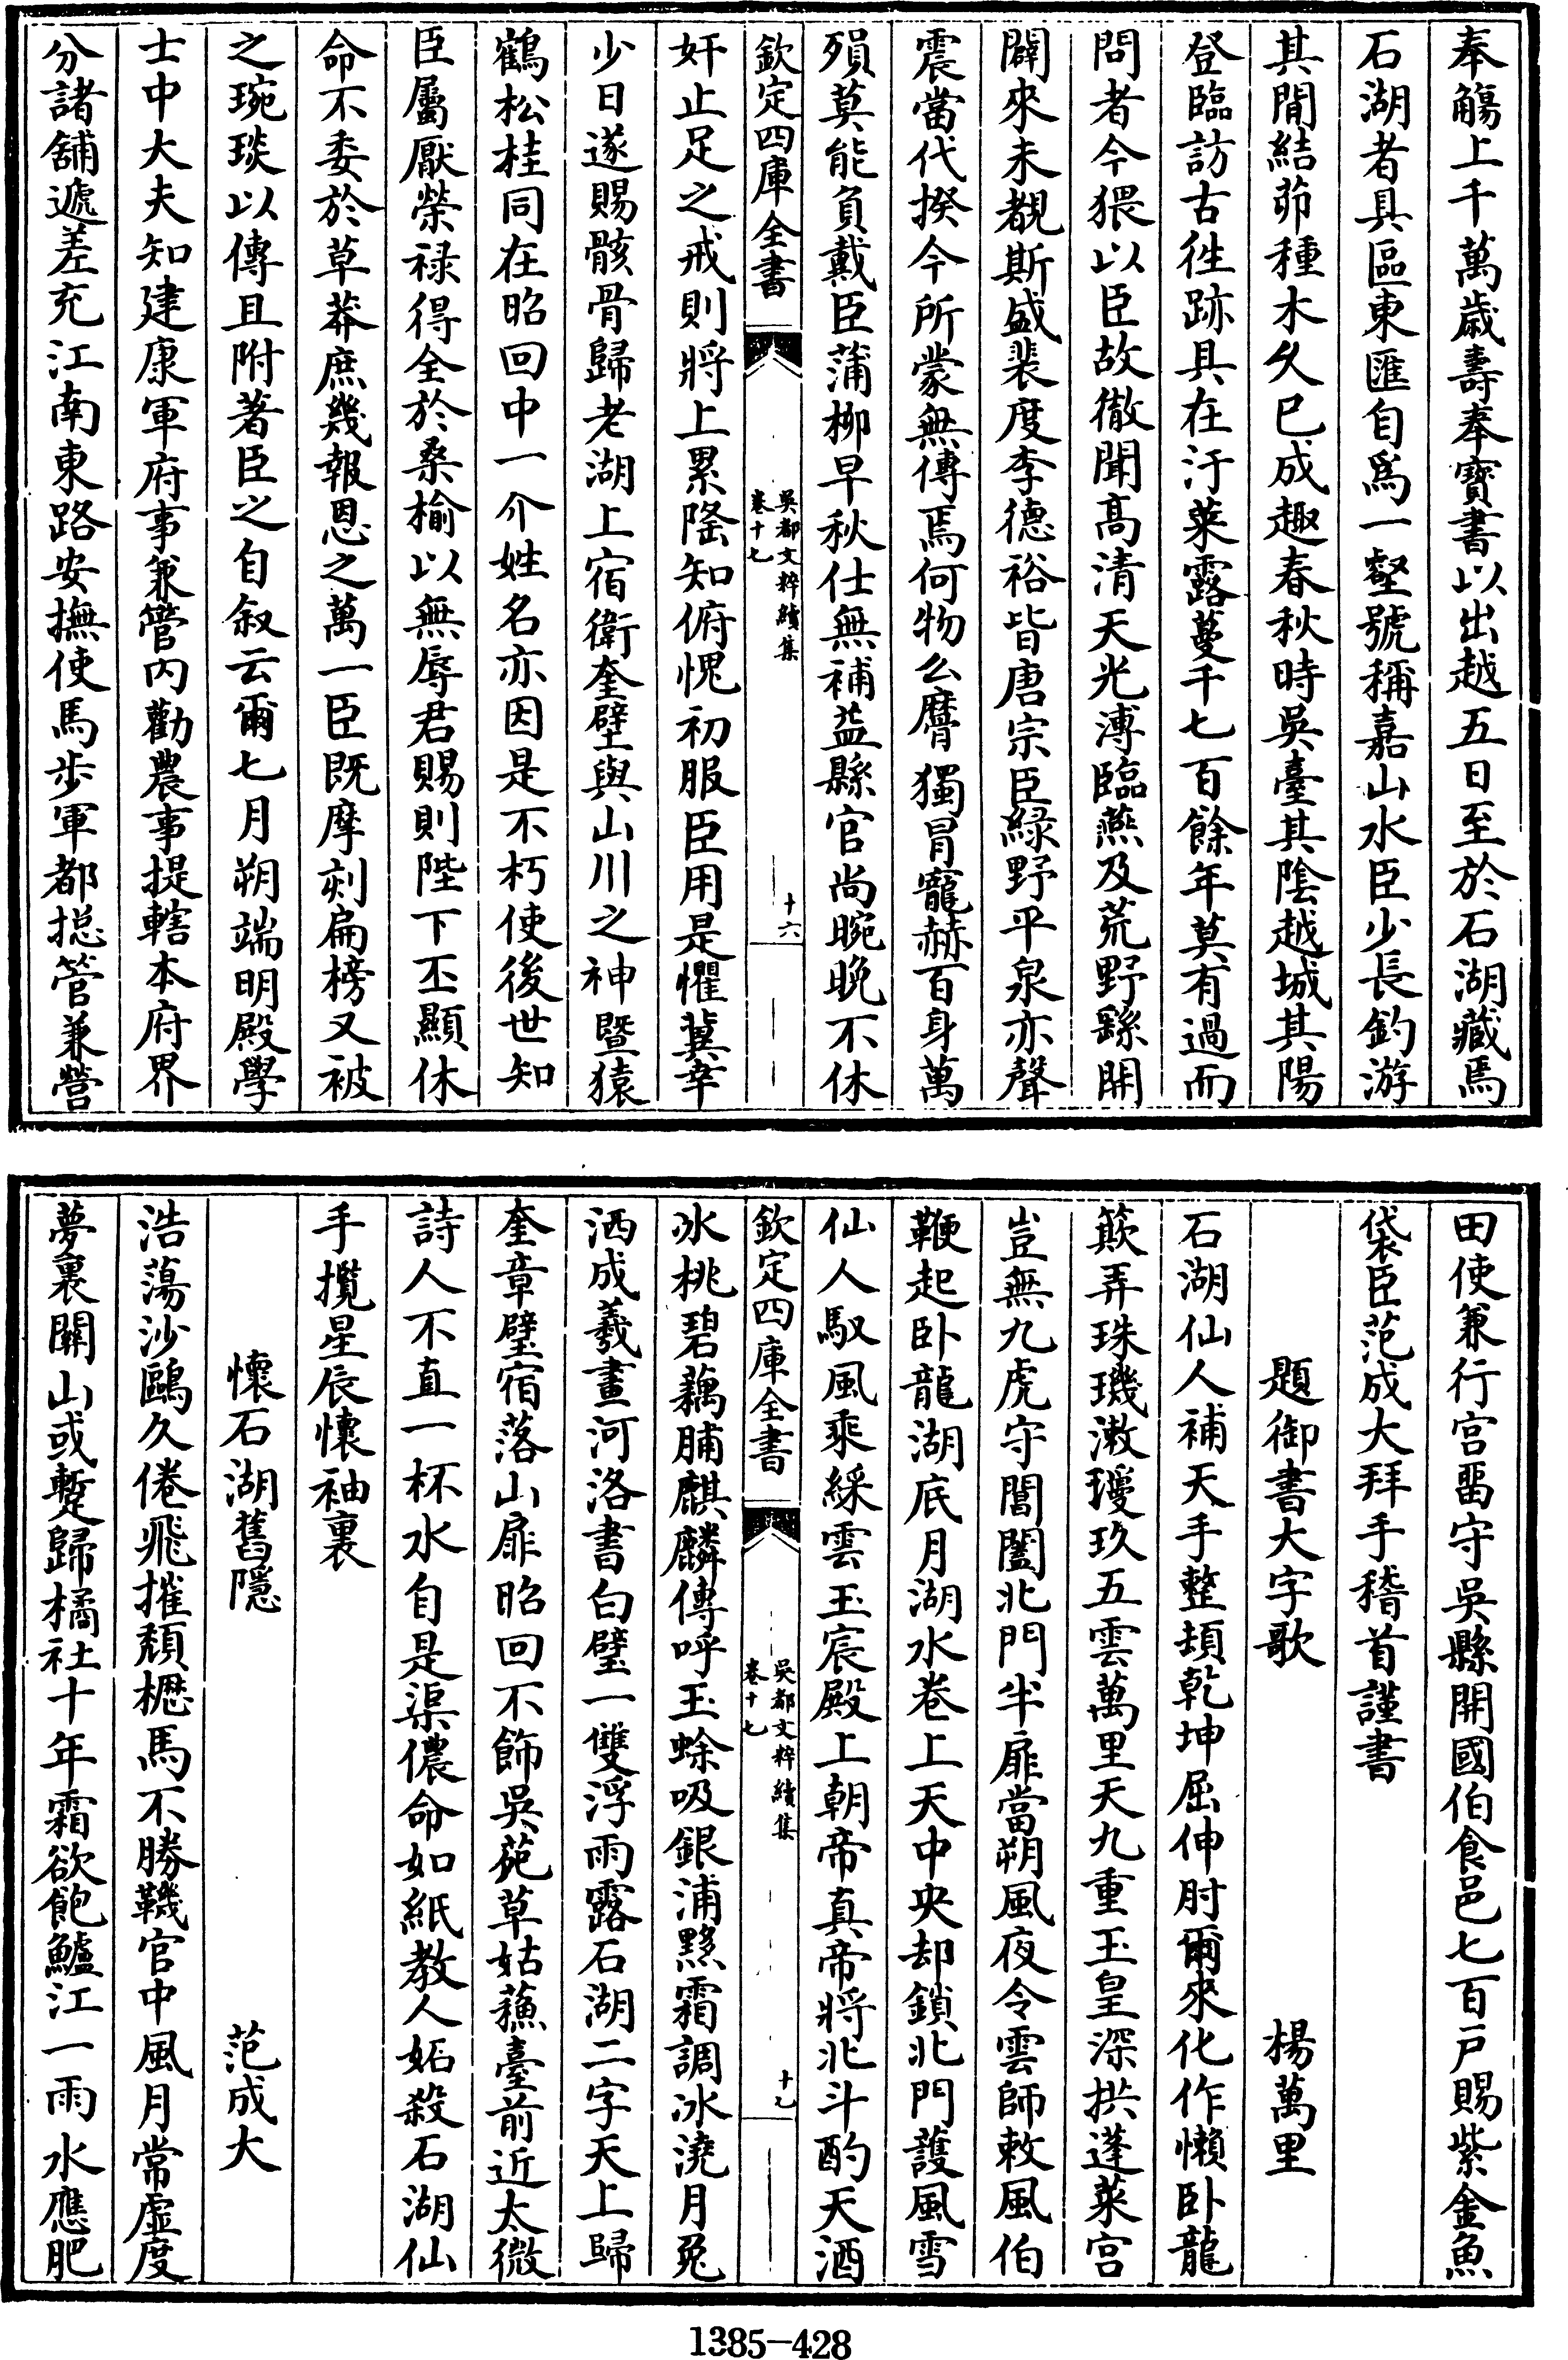 奉觴上千萬歲壽奉寶書以出越五日至於石湖藏焉
石湖者具區東匯自爲一壑號稱嘉山水臣少長釣游
其閒結茆種木久已成趣春秋時吳臺其陰越城其陽
登臨訪古徃跡具在汙萊露蔓千七百餘年莫有過而
問者今猥以臣故徹聞髙清天光溥臨燕及荒野繇開
闢來未覩斯盛裴度李德裕皆唐宗臣緑野平泉亦聲
震當代揆今所蒙無傳焉何物么麿獨冐寵赫百身萬
殞莫能負戴臣蒲柳早秋仕無補益縣官尚晼晩不休
欽定四庫全書
吳都文粹續集
卷十七
十六
奸止足之戒則將上累隆知俯愧初服臣用是懼冀幸
少日遂賜骸骨歸老湖上宿衛奎壁與山川之神暨猿
鶴松桂同在昭回中一介姓名亦因是不朽使後世知
臣屬厭榮禄得全於桑榆以無辱君賜則陛下丕顯休
命不委於草莽庶幾報恩之萬一臣既摩刻扁榜又被
之琬琰以傳且附著臣之自叙云爾七月朔端明殿學
士中大夫知建康軍府事兼管内勸農事提轄本府界
分諸鋪遞差充江南東路安撫使馬步軍都揔管兼營
田使兼行宫畱守吳縣開國伯食邑七百戸賜紫金魚
袋臣范成大拜手稽首謹書
題御書大字歌 楊萬里
石湖仙人補天手整頓乾坤屈伸肘爾來化作懶卧龍
簸弄珠璣漱瓊玖五雲萬里天九重玉皇深拱蓬萊宫
豈無九虎守閶闔北門半扉當朔風夜令雲師敕風伯
鞭起卧龍湖底月湖水卷上天中央却鎖北門護風雪
仙人馭風乘綵雲玉宸殿上朝帝真帝將北斗酌天酒
欽定四庫全書
吳都文粹續集
卷十七
十七
冰桃碧藕脯麒麟傳呼玉蜍吸銀浦黟霜調冰澆月兔
洒成羲畫河洛書白璧一雙浮雨露石湖二字天上歸
奎章璧宿落山扉昭回不飾吳苑草姑蘓臺前近太微
詩人不直一杯水自是渠儂命如紙教人妬殺石湖仙
手攬星辰懷袖裏
懷石湖舊隱 范成大
浩蕩沙鷗久倦飛摧頽櫪馬不勝鞿官中風月常虚度
夢裏闗山或蹔歸橘社十年霜欲飽鱸江一雨水應肥
1385-428